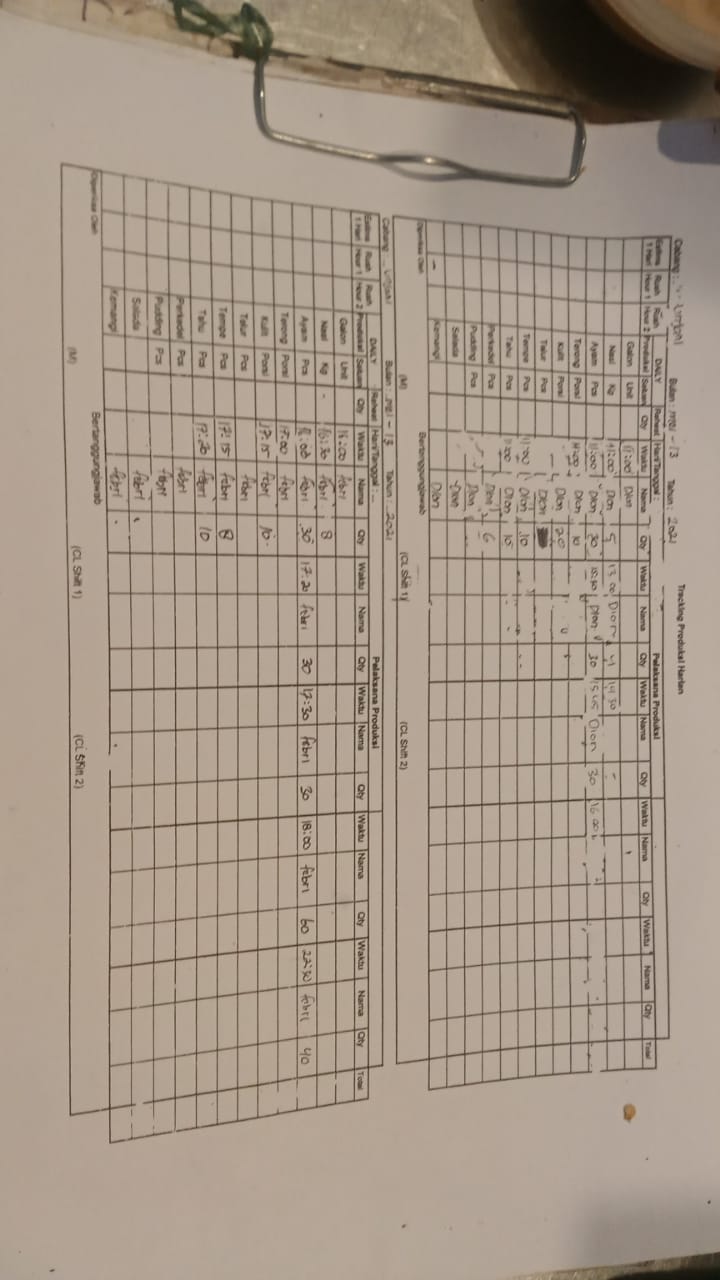 Tracking Produksi Harian
Cabang : Bulan : Mei - 13 Tahun : 2021
DAILY Rahasi Hari/Tanggal : Pelaksana Produksi
1 Hari Hour 1 Hour 2 Produksi Satuan Qty Waktu Nama Qty Waktu Nama Qty Waktu Nama Qty Waktu Nama Qty Waktu Nama Qty Total
Galon Unit 11:00 Dion
Nasi Kg 11:00 Dion 5 13:00 Dion 4 14:30
Ayam Pcs 11:00 Dion 30 Dion 30 15:45 Dion 30 16:00
Terong Porsi 11:00 Dion 10
Kulit Porsi Dion 20
Telur Pcs Dion
Tempe Pcs 11:00 Dion 10
Tahu Pcs 11:00 Dion 10
Perkedel Pcs Dion 6
Pudding Pcs Dion
Salada Dion
Kemangi Dion
Diperiksa Oleh Bertanggungjawab
(M) (CL Shift 1) (CL Shift 2)
Cabang Bulan : Mei - 13 Tahun : 2021
DAILY Hari/Tanggal : Pelaksana Produksi
1 Hari Hour 1 Hour 2 Produksi Satuan Qty Waktu Nama Qty Waktu Nama Qty Waktu Nama Qty Waktu Nama Qty Waktu Nama Qty Total
Galon Unit febri
Nasi Kg 16:30 febri 8
Ayam Pcs febri 30 17:20 febri 30 17:30 febri 30 18:00 febri 60 22:30 febri 40
Terong Porsi 17:00 febri
Kulit Porsi 17:15 febri 10
Telur Pcs febri
Tempe Pcs 17:15 febri 8
Tahu Pcs 17:20 febri 10
Perkedel Pcs febri
Pudding Pcs febri
Salada febri
Kemangi febri
Diperiksa Oleh Bertanggungjawab
(M) (CL Shift 1) (CL Shift 2)